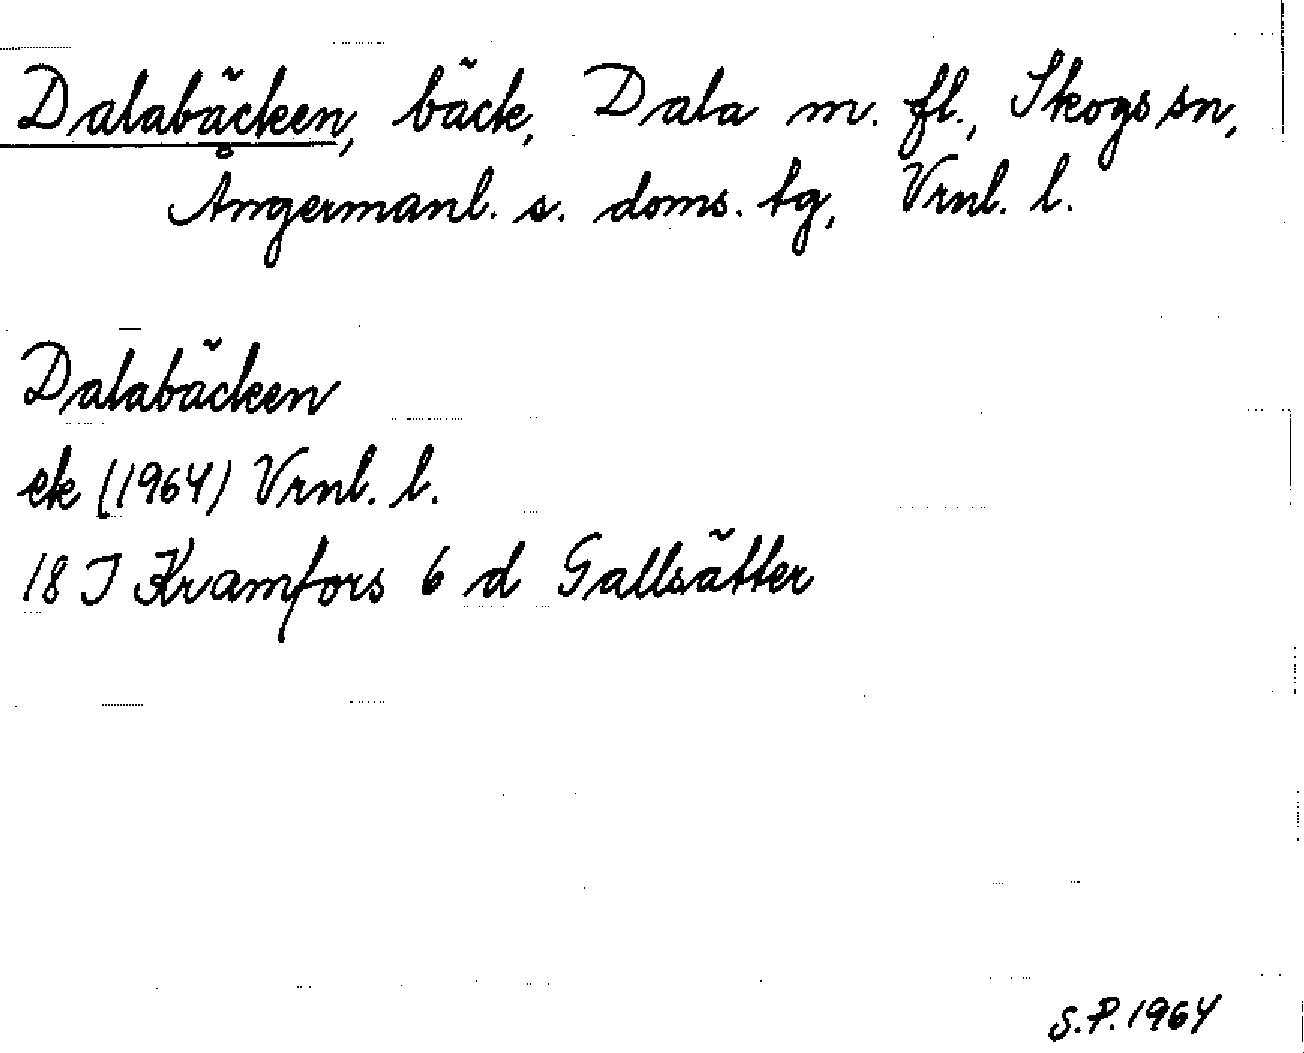 Dalabäcken, bäck, Dala m. fl., Skogs sn,
Ångermanl. s. doms. tg, Vrnl. l.
Dalabäcken
ek (1964) Vrnl. l.
18 I Kramfors 6 d Gallsätter
S.P. 1964